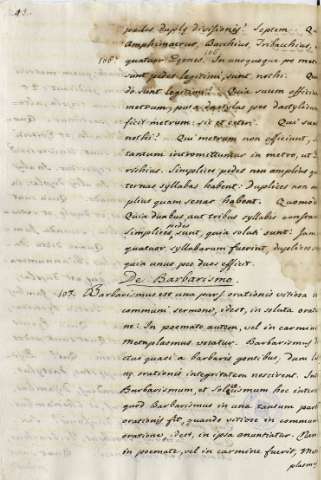 43.
pedes duplę divisionis? Septem. Qu
Amphimacrus, Bacchius, Tribacchius,
106. quatuor Epones. In unoquoque pe met
sunt pedes legitimi, sunt nothi. Qu
do sunt legitimi? Quia suum officiu
metrum, puta dactylus per dactylicu
ficit metrum: sic et ceteri. Qui sun
nothi? Qui metrum non efficiunt, s
tantum intromittuntur in metro, ut
richius. Simplices pedes non amplius q
ternas syllabas habent. Duplices non a
plius quam senas habent. Quomod
Quia duabus, aut tribus syllabis constan
simplices pedes sunt, quia soluti sunt: Jam
quatuor syllabarum fuerint, duplices s
quia unus per duos efficit.
De Barbarismo.
107. Barbarismus est una pars orationis vitiosa i
communi sermone, idest, in soluta orati
ne: In poemate autem, vel in carmine
metaplasmus vocatur. Barbarismus d
ctus quasi a barbaris gentibus, dum la
nę orationis integritatem nescirent. Int
Barbarismum, et Solęcismum hoc inter
quod Barbarismus in una tantum part
orationis fit, quando vitiose in commun
oratione, idest, in ipsa enuntiatur. Nam
in poemate, vel in carmine fuerit, Met
plasmus